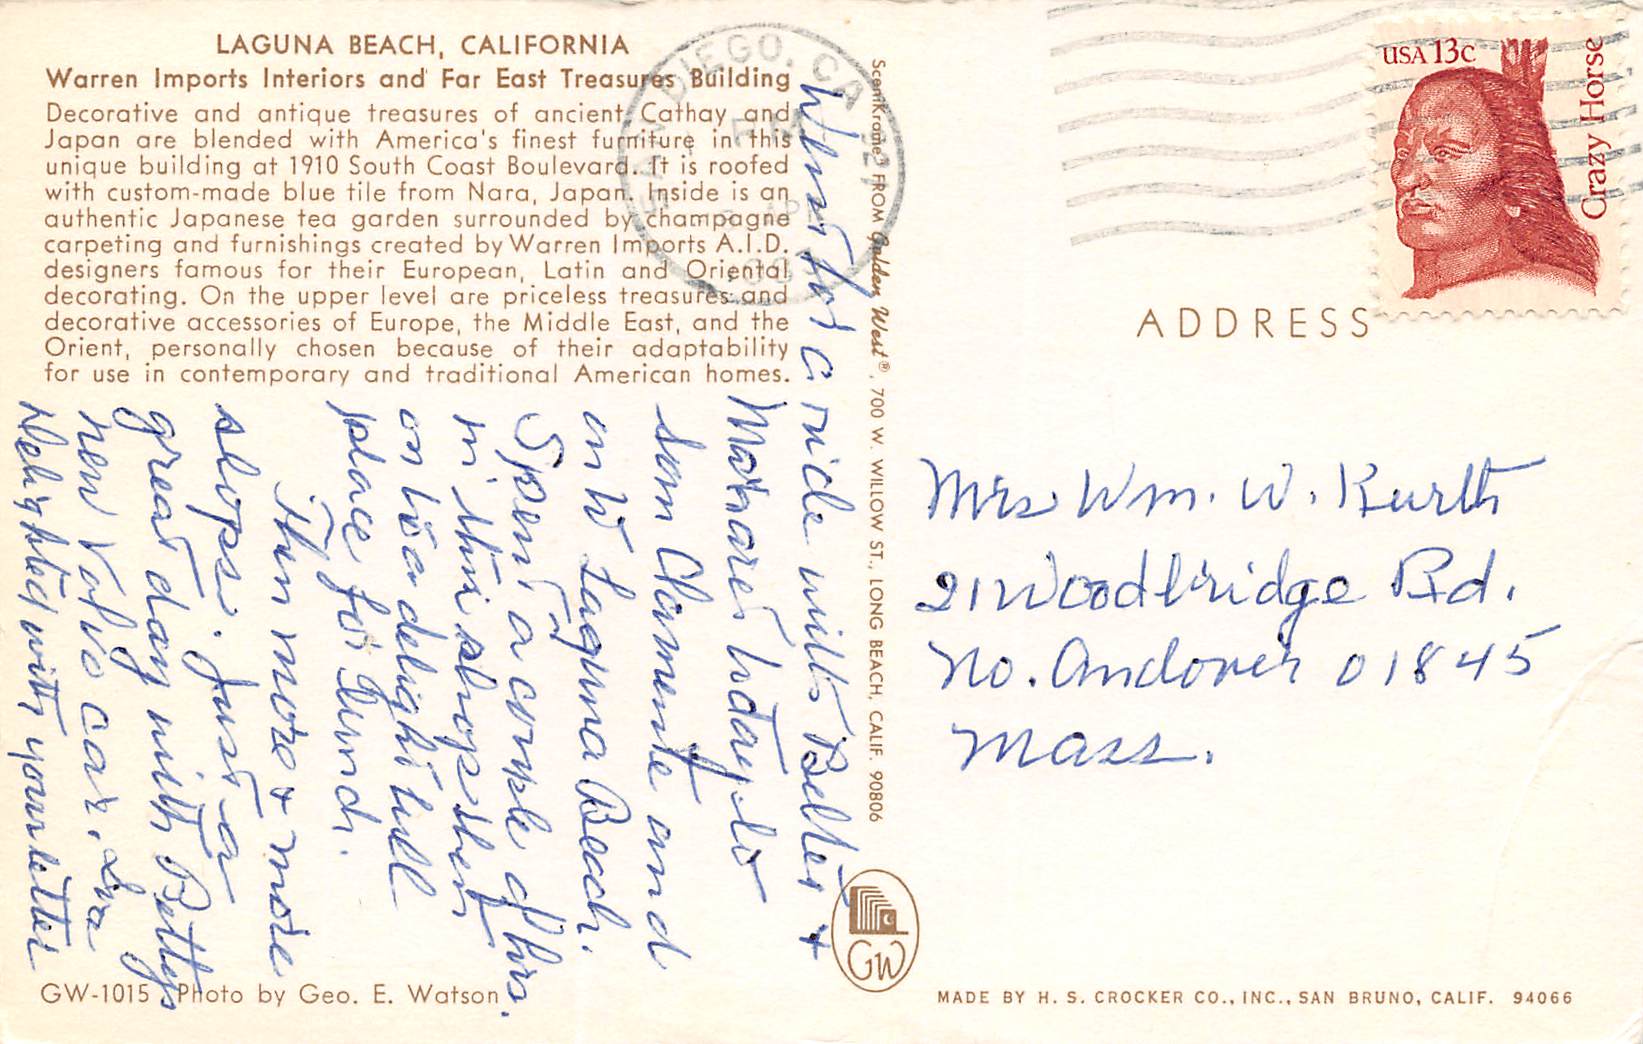 LAGUNA BEACH, CALIFORNIA
Warren Imports Interiors and Far East Treasures Building
Decorative and antique treasures of ancient Cathay and
Japan are blended with America's finest furniture in this
unique building at 1910 South Coast Boulevard. It is roofed
with custom-made blue tile from Nara, Japan. Inside is an
authentic Japanese tea garden surrounded by champagne
carpeting and furnishings created by Warren Imports A.I.D.
designers famous for their European, Latin and Oriental
decorating. On the upper level are priceless treasures and
decorative accessories of Europe, the Middle East, and the
Orient, personally chosen because of their adaptability
for use in contemporary and traditional American homes.
Went for a ride with Bette +
today to
San Clemente and
on to Laguna Beach.
Spent a couple of hrs.
in this shop then
on to a delightful
place for lunch.
Then more & more
shops. Just a
great day with Bettys
new Volvo car.
Delighted with your letter
GW-1015 Photo by Geo. E. Watson
SceniKrome® FROM Golden West®, 700 W. WILLOW ST., LONG BEACH, CALIF. 90806
GW
SAN DIEGO, CA
PM
USA 13c
Crazy Horse
ADDRESS
Mrs Wm. W. Kurth
21 Woodbridge Rd.
No. Andover 01845
Mass.
MADE BY H. S. CROCKER CO., INC., SAN BRUNO, CALIF. 94066